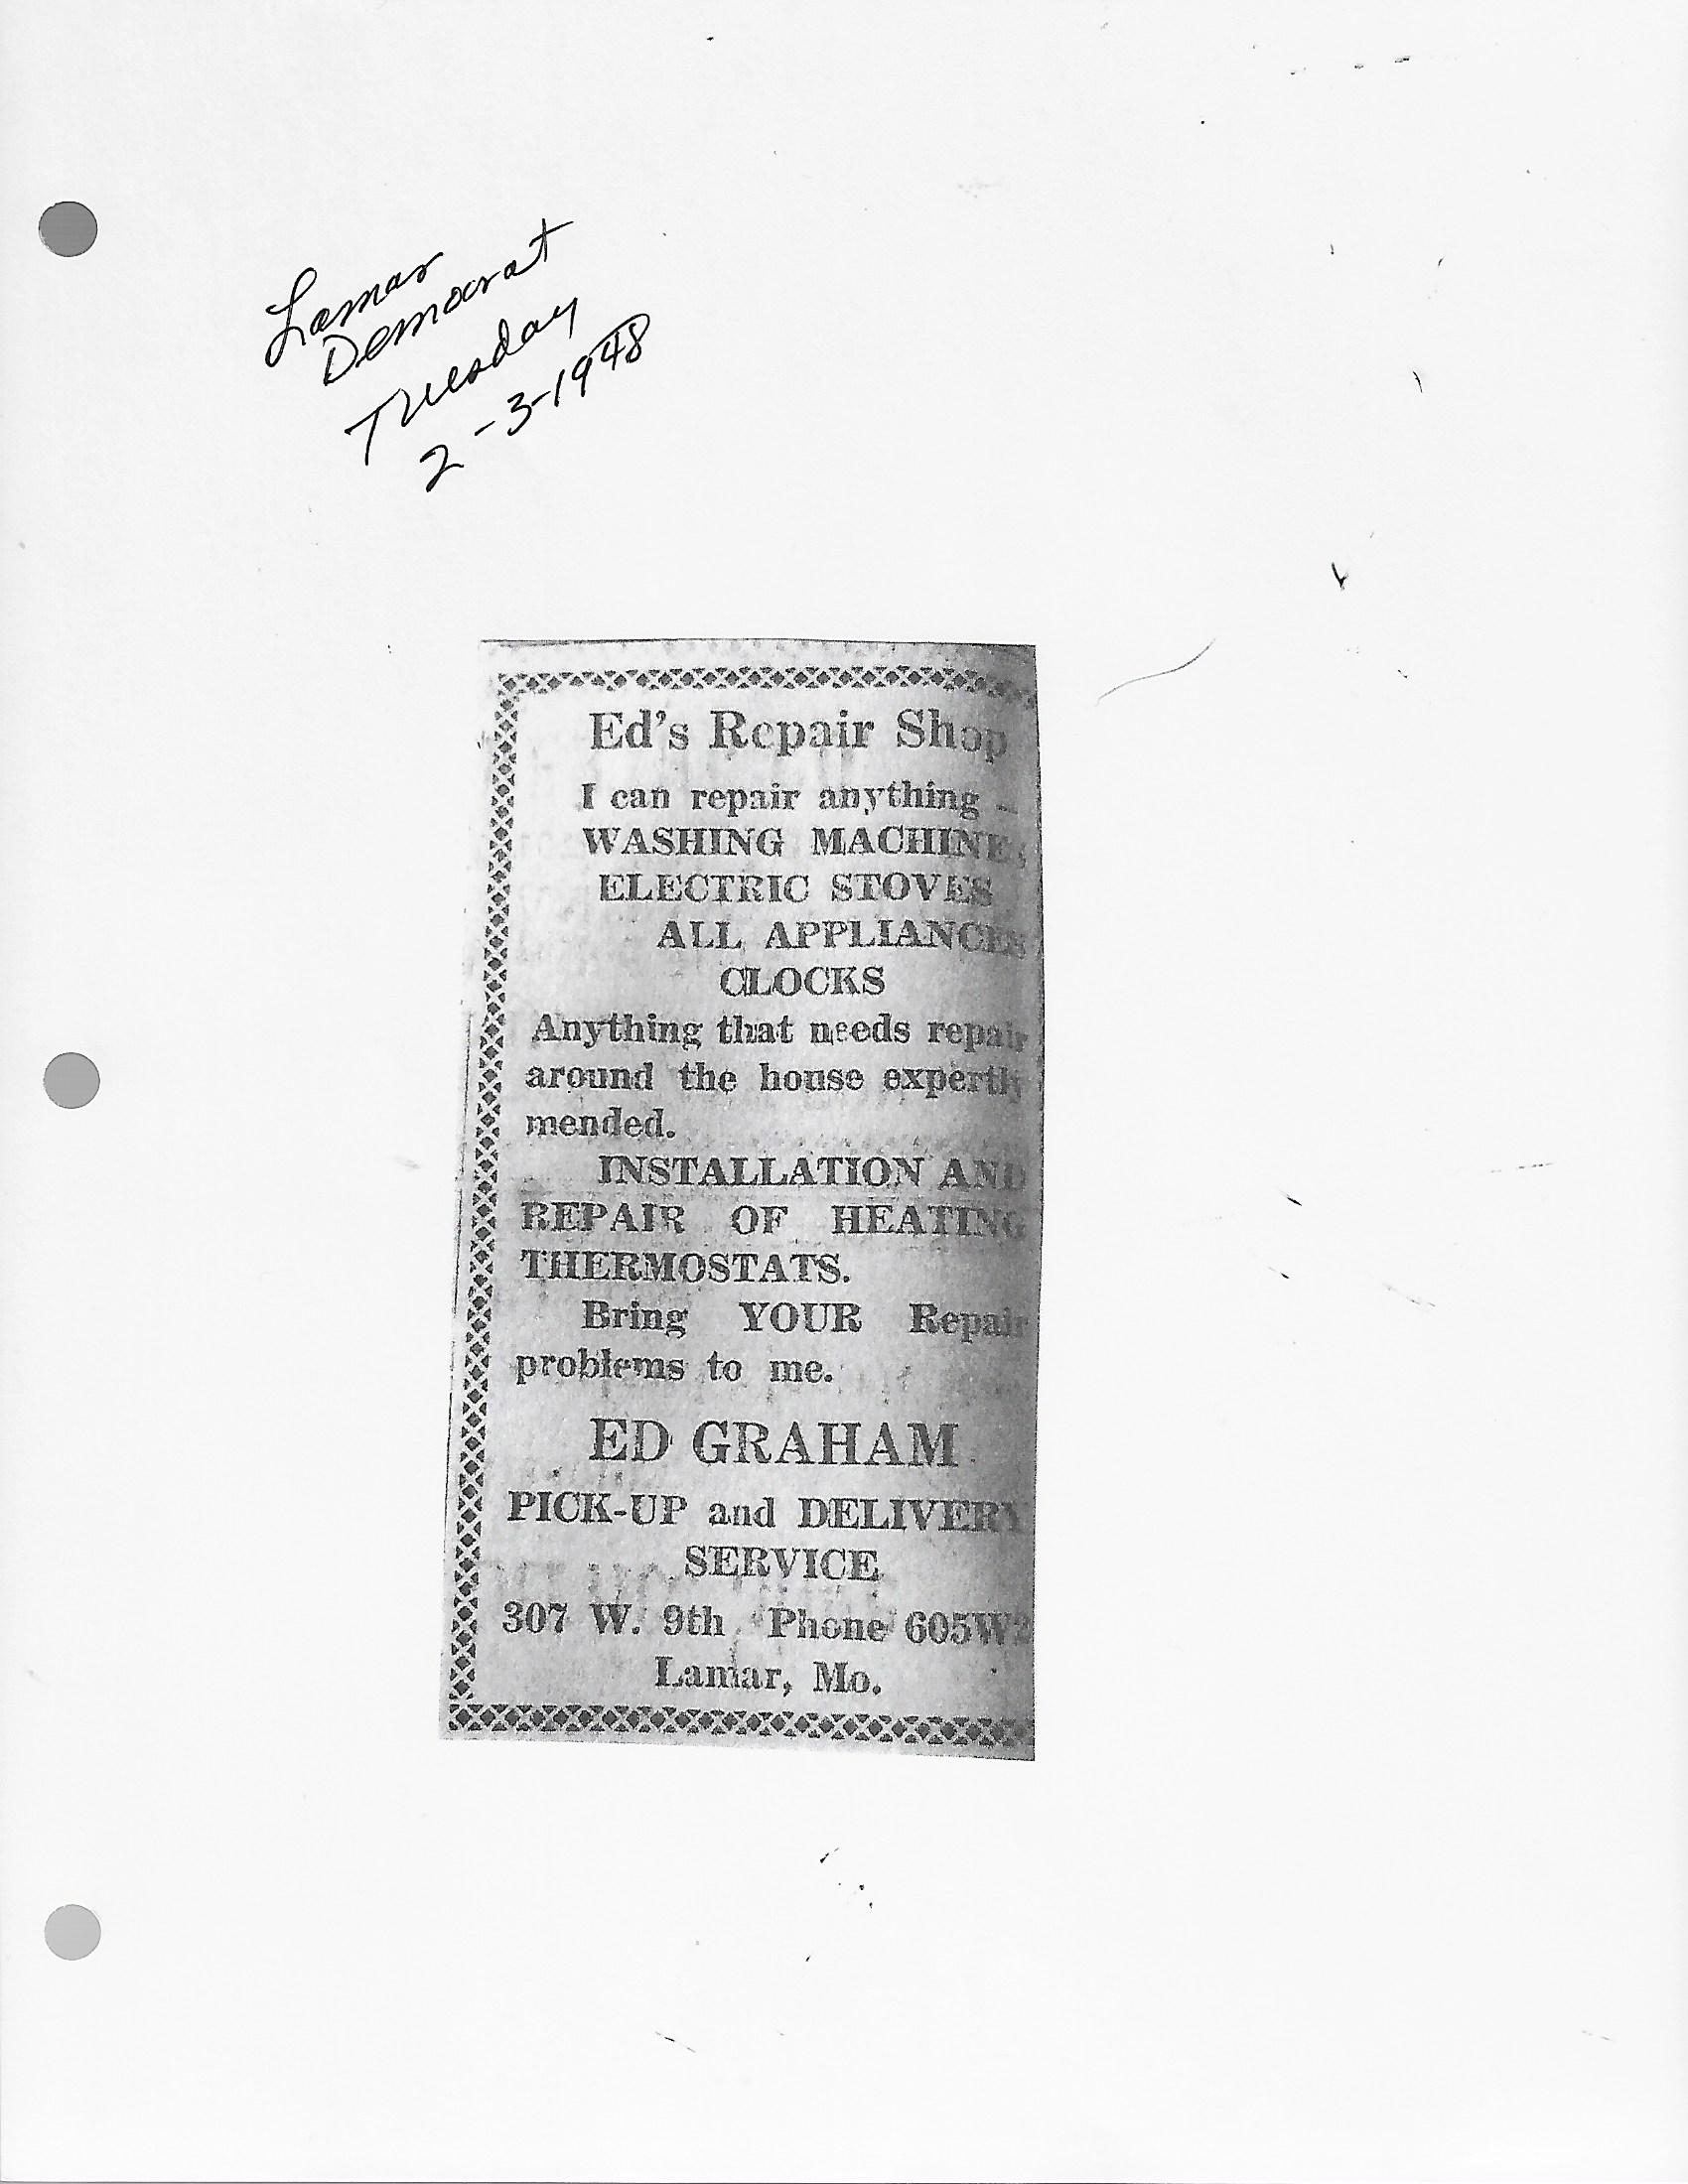 Lamar
Democrat
Tuesday
2-3-1948
Ed's Repair Shop
I can repair anything –
WASHING MACHINES
ELECTRIC STOVES
ALL APPLIANCES
CLOCKS
Anything that needs repair
around the house expertly
mended.
INSTALLATION AND
REPAIR OF HEATING
THERMOSTATS.
Bring YOUR Repair
problems to me.
ED GRAHAM
PICK-UP and DELIVERY
SERVICE
307 W. 9th Phone 605W2
Lamar, Mo.